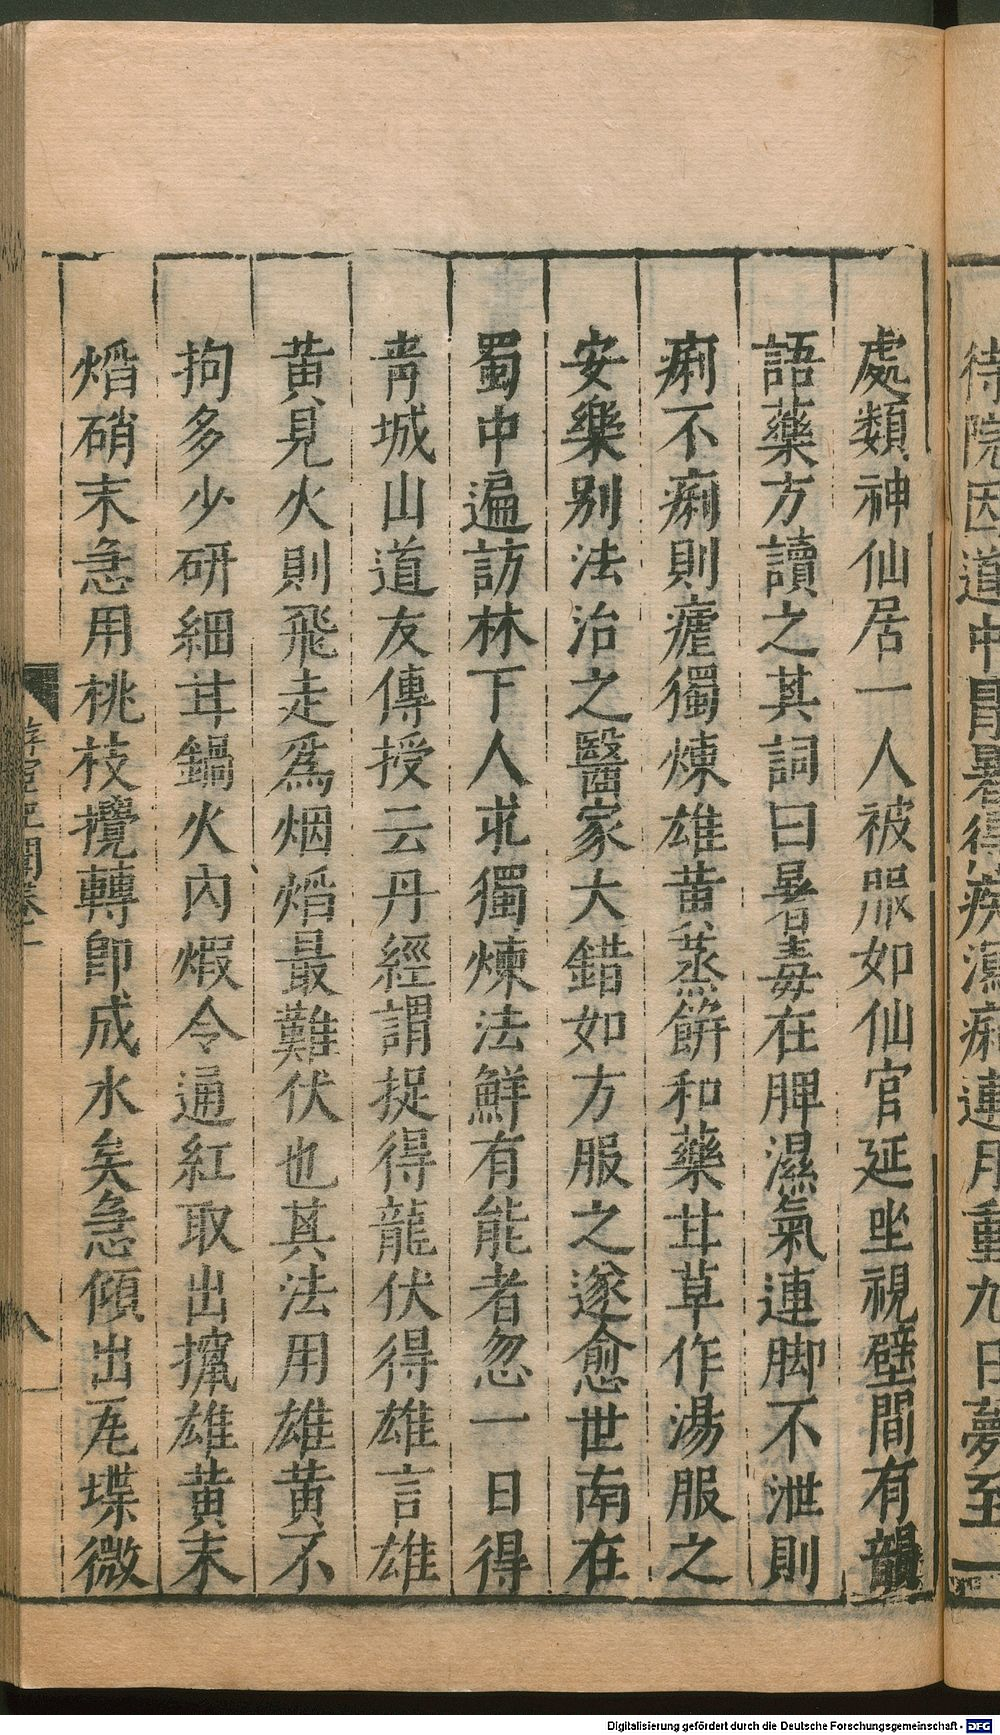 待院因道中冒暑得疾瀉痢連月重九日夢至一
處類神仙居一人被服如仙官延坐視壁間有韻
語藥方讀之其詞曰暑毒在脾濕氣連脚不泄則
痢不痢則瘧獨煉雄黄蒸餅和藥甘草作湯服之
安樂别法治之醫家大錯如方服之遂愈世南在
蜀中遍訪林下人求獨煉法鮮有能者忽一日得
青城山道友傳授云丹經謂捉得龍伏得雄言雄
黄見火則飛走爲烟熖最難伏也其法用雄黄不
拘多少研細甘鍋火内煆令通紅取出攛雄黄末
熖硝末急用桃枝攪轉即成水矣急傾出瓦堞微
八
Digitalisierung gefördert durch die Deutsche Forschungsgemeinschaft - DFG